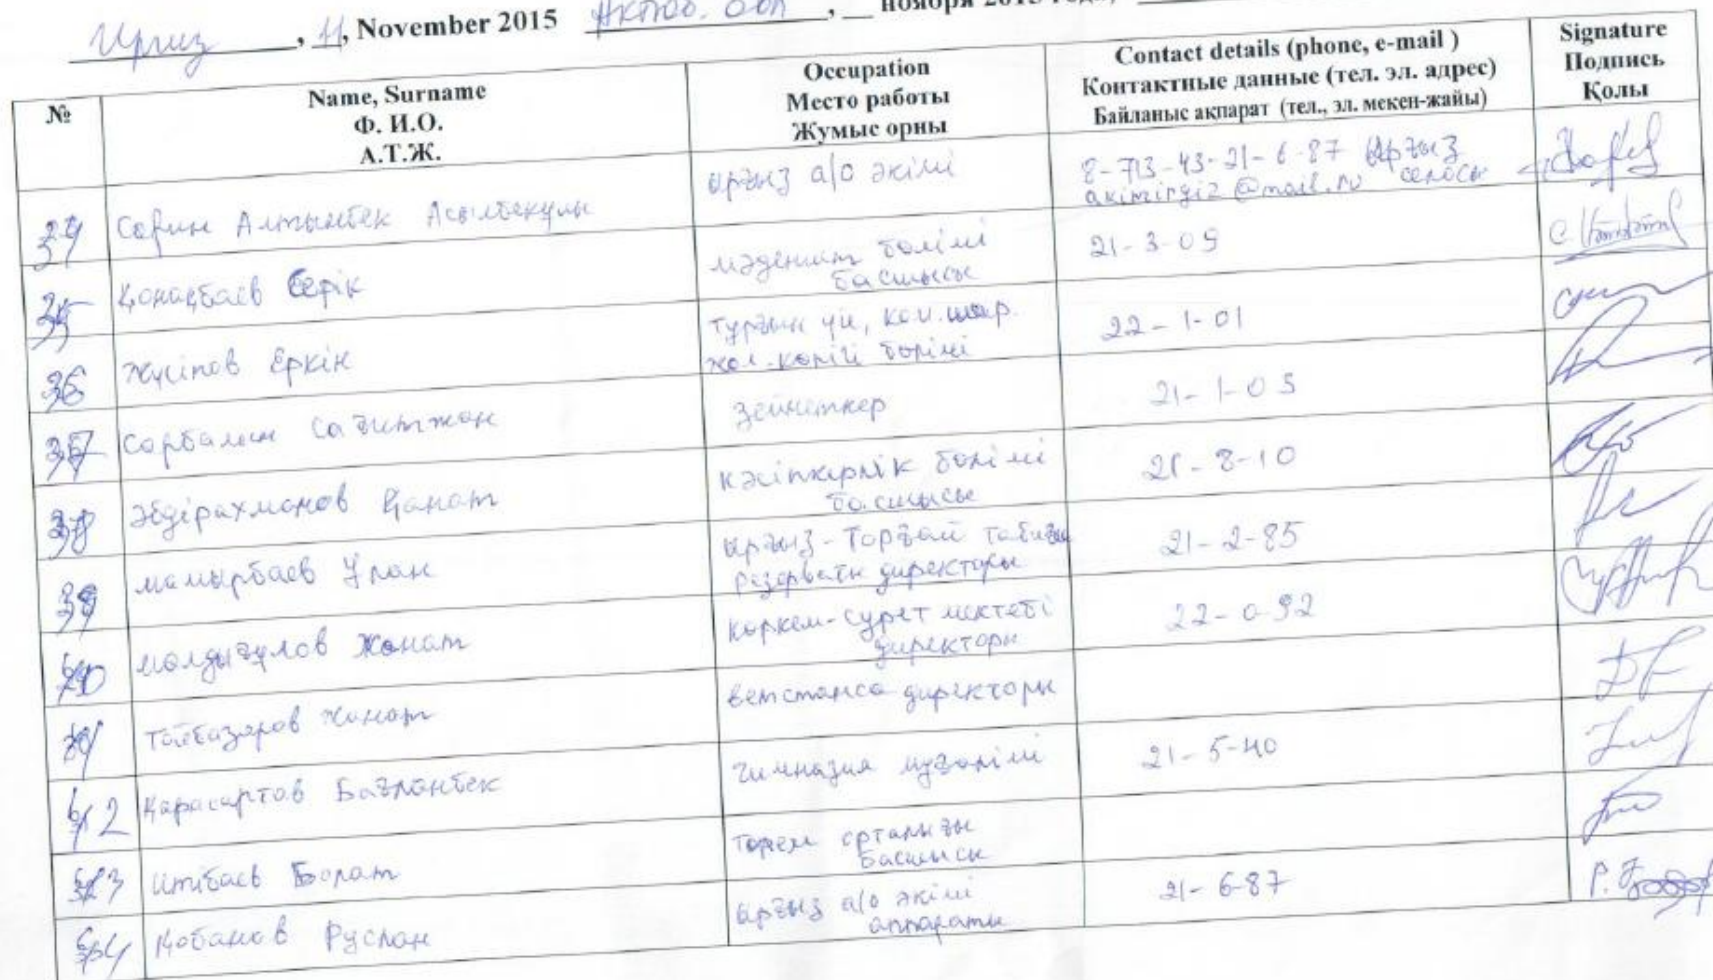 Иргиз, 11, November 2015 Актоб. обл, __ ноября 2015 года,
№
Name, Surname
Ф. И.О.
А.Т.Ж.
Occupation
Место работы
Жумыс орны
Contact details (phone, e-mail )
Контактные данные (тел. эл. адрес)
Байланыс ақпарат (тел., эл. мекен-жайы)
Signature
Подпись
Қолы
34 Сарин Алтынбек Асылбекұлы
ырғыз а/о әкімі
8-713-43-21-6-87 Ырғыз
akimirgiz@mail.ru селосы
35 Қонақбаев Серік
мәдениет бөлімі
басшысы
21-3-09
36 Жүсіпов Еркін
тұрғын үй, ком.шар.
жол-көлігі бөлімі
22-1-01
37 Сарбалин Сағитжан
зейнеткер
21-1-05
38 Әбдірахманов Қанат
кәсіпкерлік бөлімі
басшысы
21-8-10
39 Мамырбаев Ұлан
ырғыз-Торғай табиғи
резерваты директоры
21-2-85
40 Молдығұлов Жанат
көркем-сурет мектебі
директоры
22-0-92
41 Тойбазаров Жанат
ветстанса директоры
42 Қарасартов Бағланбек
гимназия мұғалімі
21-5-40
43 Итібаев Болат
орталығы
басшысы
44 Қобанов Руслан
ырғыз а/о әкімі
аппараты
21-6-87